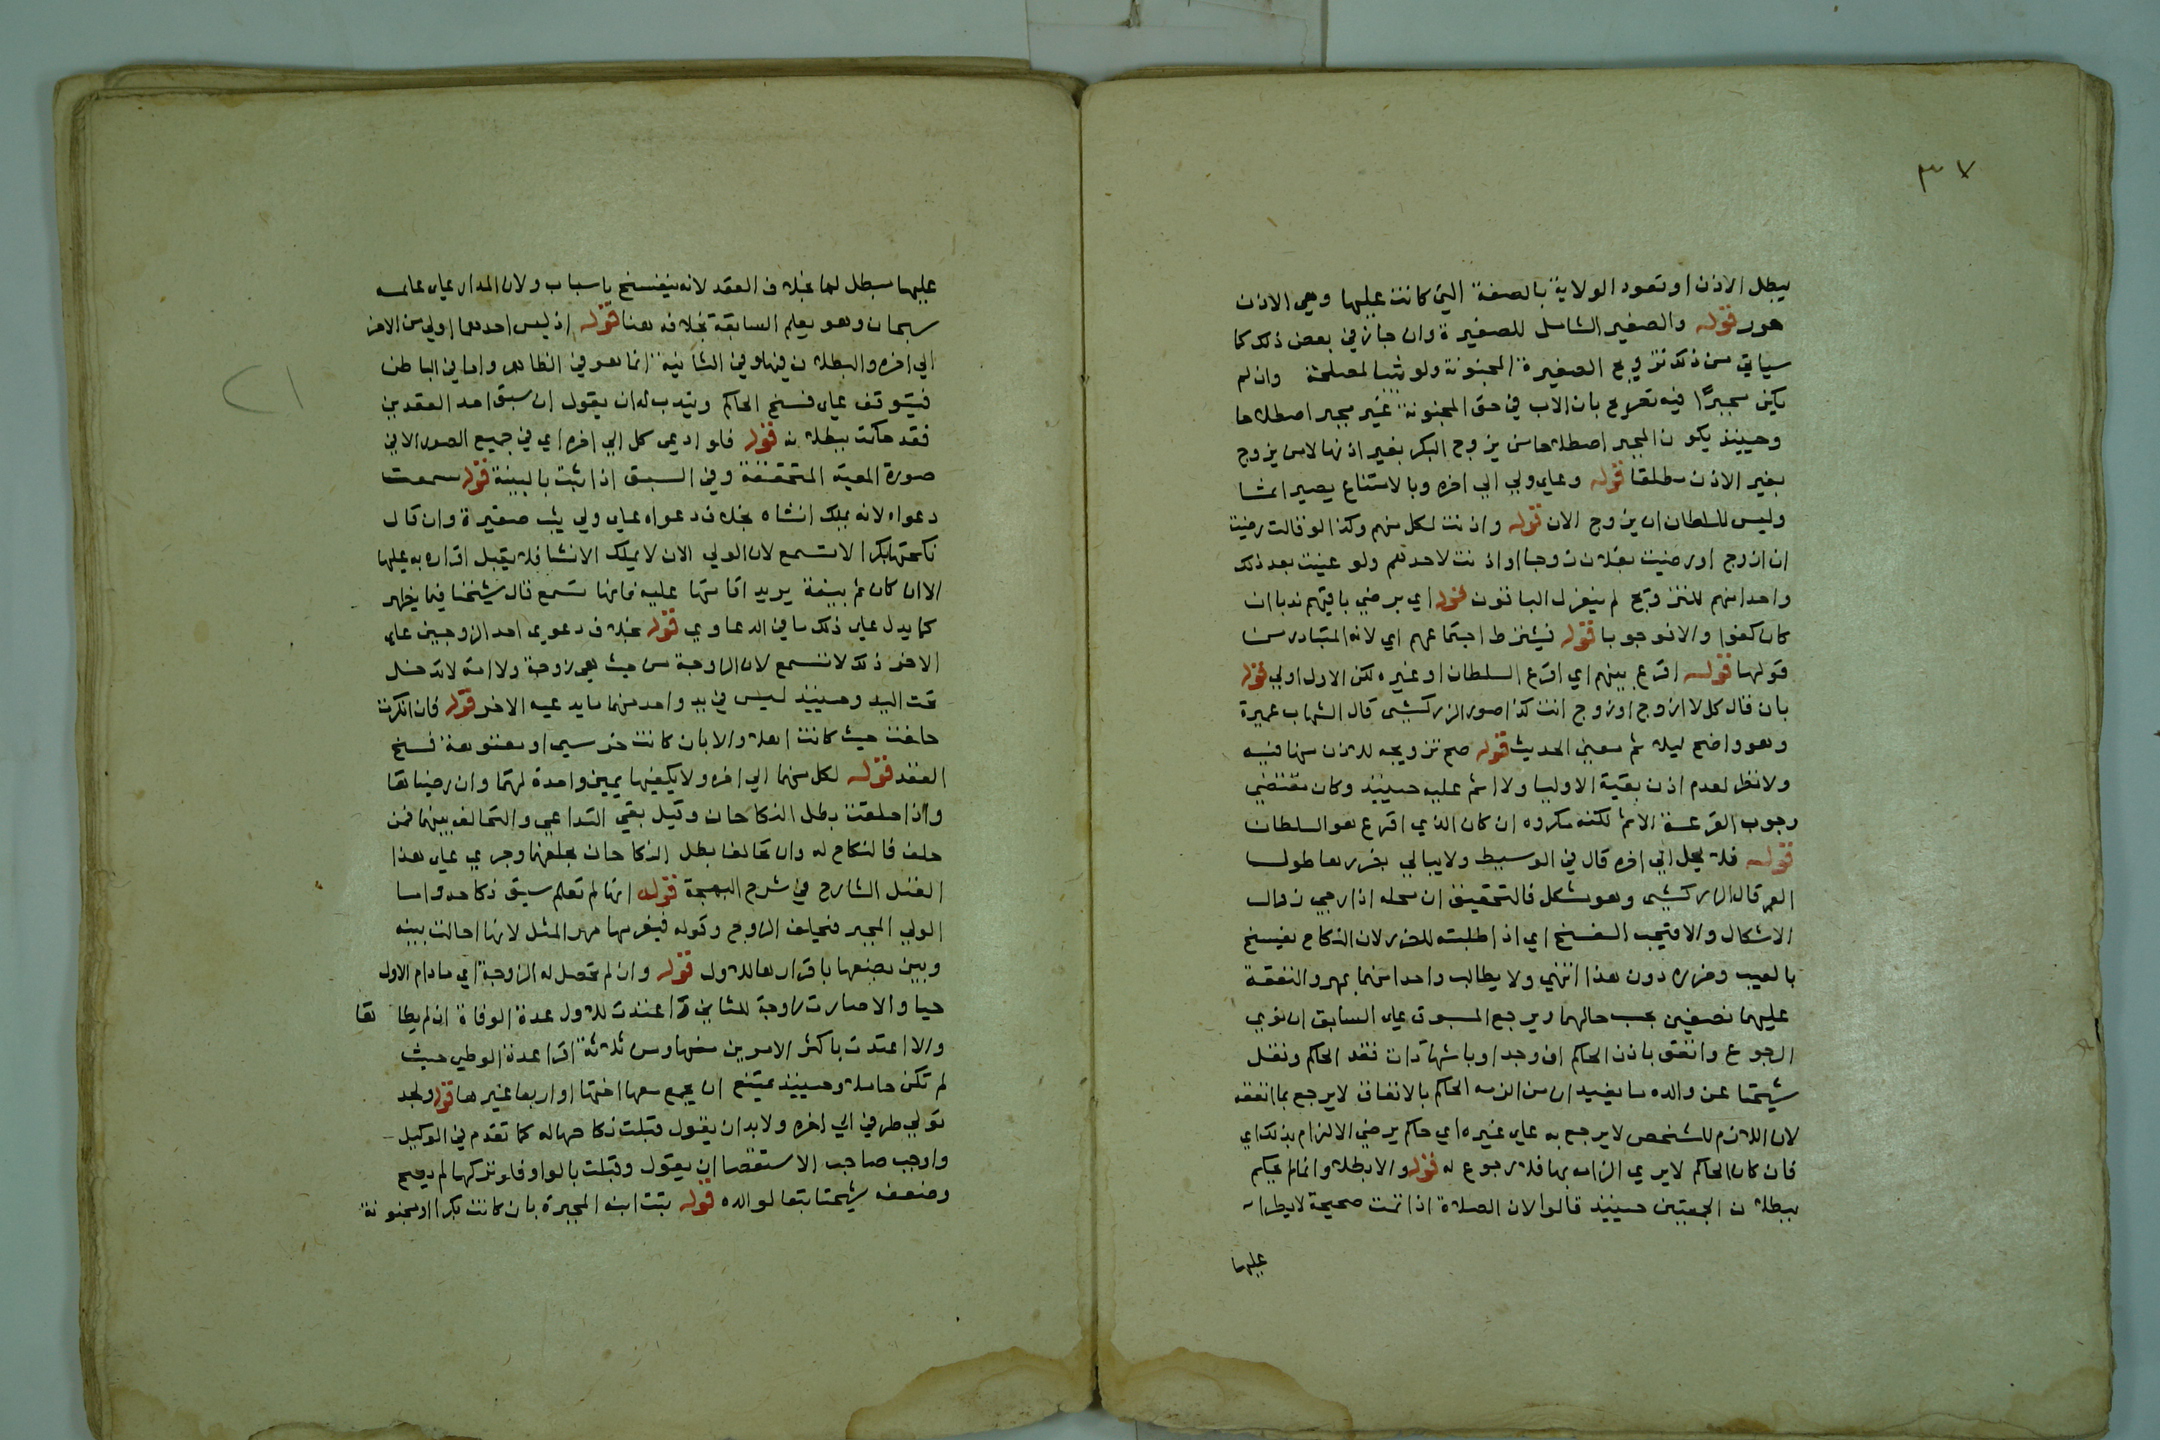 ٣٧
يبطل الاذن او تعود الولاية بالصفة التي كانت عليها وهي الاذن
قوله والصغير الشامل للصغيرة وان جاز في بعض ذلك كما
سياتي من ذلك تزويج الصغيرة المجنونة ولو ثيبا لمصلحة وان لم
يكن مجبرًا فيه تصريح بان الاب في حق المجنونة غير مجبر اصطلاحا
وحينيذ يكون المجبر اصطلاحا من يزوج البكر بغير اذنها لا من يزوج
بغير الاذن مطلقا قوله وعلي ولي الي اخره وبالامتناع يصير اثما
وليس للسلطان ان يزوج الان قوله واذنت لكل منهم وكذا لو قالت رضيت
ان ازوج او رضيت بفلان زوجا او اذنت لاحدهم ولو عينت بعد ذلك
واحدا منهم للتزويج لم ينعزل الباقون قوله اي برضي باقيهم ندبا ان
كان كفوا والا فوجوبا قوله فيشترط اجتماعهم اي لانه المتبادر من
قولها قوله اقرع بينهم اي اقرع السلطان او غيره لكن الاول اولي قوله
بان قال كل لا ازوج او زوج انت كذا صور الزركشي قال الشهاب عميرة
وهو واضح ليلائم معني الحديث قوله صح تزويجه للاذن منها فيه
ولا نظر لعدم اذن بقية الاوليا ولا اثم عليه حينيذ وكان مقتضي
وجوب القرعة الاثم لكنه مكروه ان كان الذي اقرع هو السلطان
قوله فلا يحل الي اخره قال في الوسيط ولا يبالي بضررها طول
العمر قال الزركشي وهو مشكل فالتحقيق ان محله اذا رجي زوال
الاشكال والا فيجب الفسخ اي اذا طلبته للضرر لان النكاح يفسخ
بالعيب وضرره دون هذا انتهي ولا يطالب واحدا منهما بمهر والنفقة
عليهما نصفين بحسب حالهما ويرجع المسبوق علي السابق ان نوي
الرجوع وانفق باذن الحاكم ان وجد او باشهاد ان فقد الحاكم ونقل
شيخنا عن والده ما يفيد ان من الزمه الحاكم بالانفاق لا يرجع بما انفقه
لان اللازم للشخص لا يرجع به علي غيره اي حاكم يرضي الالزام بذلك اي
فان كان الحاكم لا يري الزامه بها فلا رجوع له قوله والا بطلا وانما لم يحكم
ببطلان الجمعتين حينيذ قالوا لان الصلاة اذا تمت صحيحة لا يطرا
عليها
عليها مبطل لها بخلاف العقد لانه ينفسخ باسباب ولان المدار علي علمه
سبحانه وهو يعلم السابقة بخلافه هنا قوله اذ ليس احدهما اولي من الاخر
الي اخره والبطلان فيها وفي الثانية انما هو في الظاهر واما في الباطن
فيتوقف علي فسخ الحاكم ويندب له ان يقول ان سبق احد العقدين
فقد حكمت ببطلانه قوله فلو ادعي كل الي اخره اي في جميع الصور الا في
صورة المعية المتحققة وفي السبق اذا ثبت بالبينة قوله سمعت
دعواه لانه يملك انشاه بخلاف دعواه علي ولي ثيب صغيرة وان قال
نكحتها بكرا لا تسمع لان الولي الان لا يملك الانشا فلا يقبل اقراره به عليها
الا ان كان ثم بينة يريد اقامتها عليه فانها تسمع قال شيخنا فيما يظهر
كما يدل علي ذلك ما في الدعاوي قوله بخلاف دعوي احد الزوجين علي
الاخر ذلك لا تسمع لان الزوجة من حيث هي زوجة ولا امة لا تدخل
تحت اليد وحينيذ ليس في يد واحد منهما ما يدعيه الاخر قوله فان انكرت
حلفت حيث كانت اهلا والا بان كانت خرسي او معتوهة فسخ
العقد قوله لكل منهما الي اخره ولا يكفيها يمين واحدة لهما وان رضيا بها
واذا حلفت بطل النكاحان وقيل بقي التداعي والتحالف بينهما فمن
حلف فالنكاح له وان تحالفا بطل النكاحان بحلفهما وجري علي هذا
القيل الشارح في شرح البهجة قوله انها لم تعلم سبق نكاحه واما
الولي المجبر فيحلف الزوج وقوله فيغرمها مهر المثل لانها احالت بينه
وبين بضعها باقرارها للاول قوله وان لم تحصل له الزوجة اي ما دام الاول
حيا والا صارت زوجة للثاني واعتدت للاول عدة الوفاة ان لم يطاها
والا اعتدت باكثر الامرين منها ومن ثلاثة اقرا عدة الوطي حيث
لم تكن حاملا وحينيذ يمتنع ان يجمع معها اختها او اربعا غيرها قوله ولجد
تولي طرفي الي اخره ولا بد ان يقول قبلت نكاحها له كما تقدم في الوكيل
واوجب صاحب الاستقصا ان يقول وقبلت بالواو فلو تركها لم يصح
وضعفه شيخنا تبعا لوالده قوله بنت ابنه المجبرة بان كانت بكرا او مجنونة